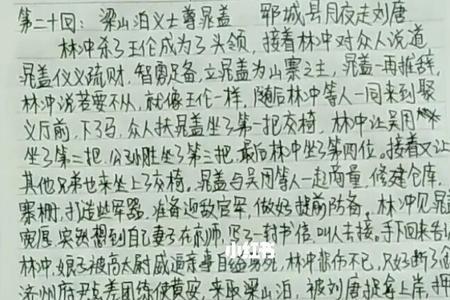 第二十回：梁山泊义士尊晁盖 郓城县月夜走刘唐
林冲杀了王伦成为了头领，接着林冲对众人说道
晁盖仗义疏财，智勇足备，立晁盖为山寨之主，晁盖一再推辞，
林冲说若要不从，就像王伦一样，随后林冲等人一同来到聚
义厅前，下了马，众人扶晁盖坐了第一把交椅，林冲让吴用
坐了第二把，公孙胜坐了第三把，最后林冲坐了第四位，接着又让
其他兄弟也来坐上了交椅。晁盖与吴用等人一起商量，修建仓库，
寨栅，打造些军器，准备迎敌官军，做好提前防备。林冲见晁盖
宽厚，突然想到自己妻子在京师，写了一封书信，叫人去接。手下回来告诉
林冲，娘子被高太尉威逼亲事自缢身死，林冲悲伤不已，只好断了
济州府尹点差团练使黄安，来取梁山泊，被刘唐捉拿上岸，押
小红书